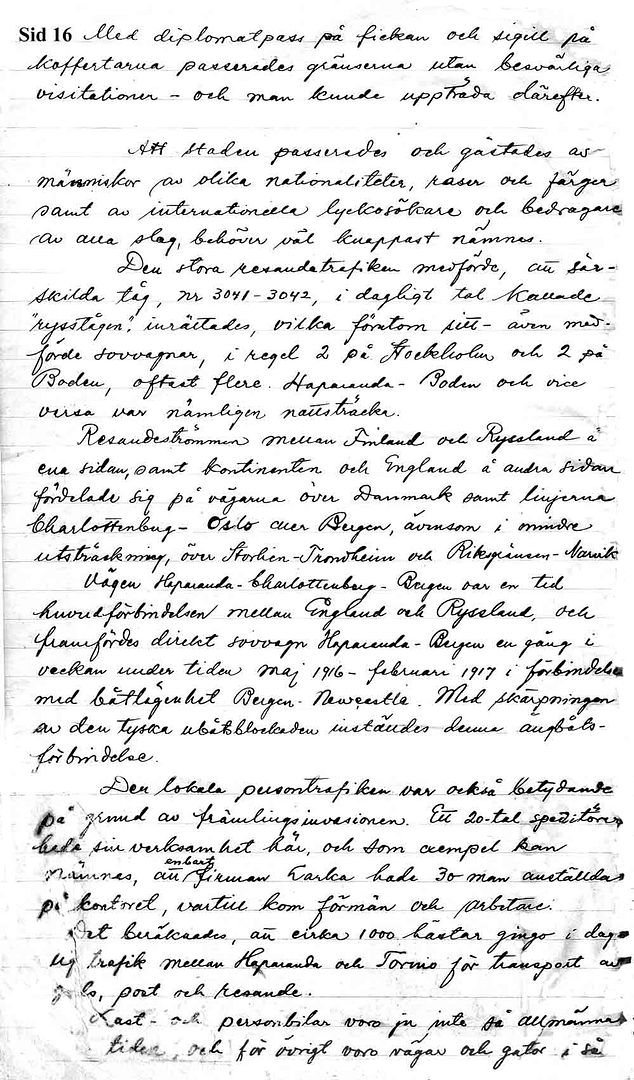 Sid 16 Med diplomatpass på fickan och sigill på
koffertarna passerades gränserna utan besvärliga
visitationer - och man kunde uppträda därefter.
Att staden passerades och gästades av
människor av olika nationaliteter, raser och färger
samt av internationella lyckosökare och bedragare
av alla slag, behöver väl knappast nämnes.
Den stora resandetrafiken medförde, att sär-
skilda tåg, nr 3041-3042, i dagligt tal kallade
"rysstågen", inrättades, vilka förutom sitt- även med-
förde sovvagnar, i regel 2 på Stockholm och 2 på
Boden, oftast flere. Haparanda - Boden och vice
versa var nämligen nattsträcka.
Resandeströmmen mellan Finland och Ryssland å
ena sidan, samt kontinenten och England å andra sidan
fördelade sig på vägarna över Danmark samt linjerna
Charlottenbug - Oslo eller Bergen, ävensom i mindre
utsträckning, över Storlien-Trondheim och Riksgränsen-Narvik
Vägen Haparanda-Charlottenberg - Bergen var en tid
huvudförbindelsen mellan England och Ryssland, och
framfördes direkt sovvagn Haparanda-Bergen en gång i
veckan under tiden maj 1916 - februari 1917 i förbindelse
med båtlägenhet Bergen - Newcastle. Med skärpningen
av den tyska ubåtblockaden inställdes denna ångbåts-
förbindelse.
Den lokala persontrafiken var också betydande
på grund av främlingsinvasionen. Ett 20-tal speditörer
hade sin verksamhet här, och som exempel kan
nämnes, att enbart firman hade 30 man anställda
på kontoret, vartill kom förmän och arbetare.
Det beräknades, att cirka 1000 hästar gingo i dag-
lig trafik mellan Haparanda och Torneo för transport av
gods, post och resande.
Last- och personbilar voro ju inte så allmänna
tiden, och för övrigt voro vägar och gator i så